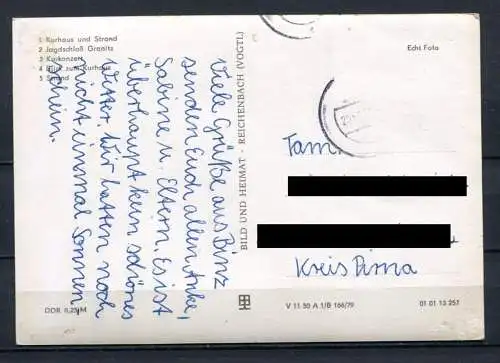 1 Kurhaus und Strand
2 Jagdschloß Granitz
3 Kurkonzert
4 Blick zum Kurhaus
5 Strand
Echt Foto
Viele Grüße aus Binz
senden Euch allen Anke,
Sabine u. Eltern. Es ist
überhaupt kein schönes
Wetter. Wir hatten noch
nicht einmal Sonnen
schein.
BILD UND HEIMAT · REICHENBACH (VOGTL)
Fam.
Kreis Pirna
DDR 0,25 M
V 11 50 A 1/B 166/79
01 01 13 257